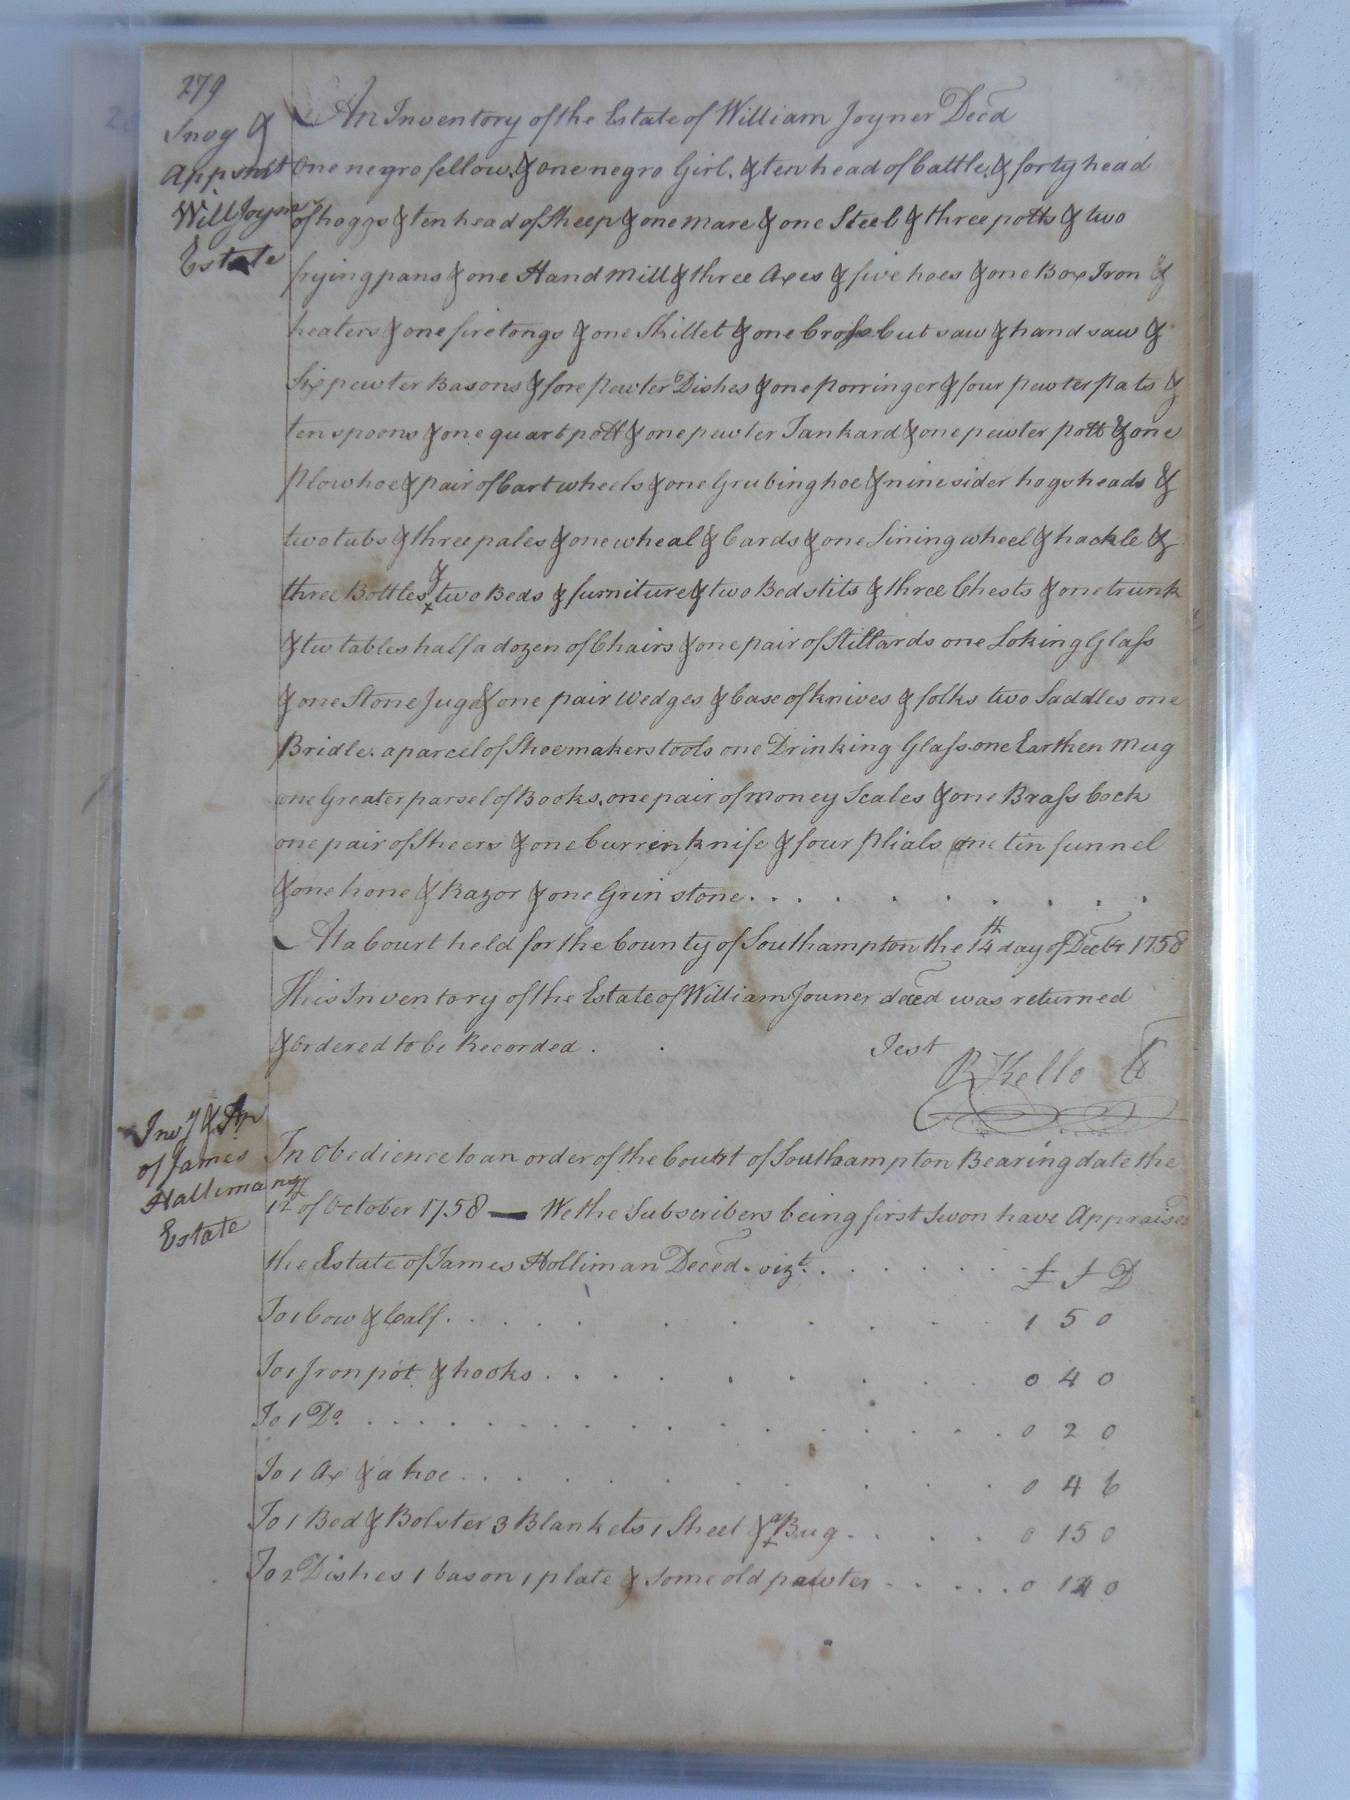 279
Invy &
Appsmt
Will Joyner
Estate
An Inventory of the Estate of William Joyner Decd
One negro fellow. & one negro Girl. & ten head of Cattle, & forty head
of hoggs & ten head of Sheep & one mare & one Steel & three potts & two
frying pans & one Hand Mill & three Axes & five hoes & one Box Iron &
heaters & one fire tongs & one Skillet & one Cross Cut saw & hand saw &
Six pewter Basons & fore pewter Dishes & one porringer & four pewter plats &
ten spoons & one quart pott & one pewter Tankard & one pewter pott & one
Plow hoe & pair of Cart wheels & one Grubing hoe & nine sider hogsheads &
two tubs & three pales & one wheal & Cards & one Sining wheel & hackle &
three Bottles & two Beds & furniture & two Bedstits & three Chests & one trunk
& two tables half a dozen of Chairs & one pair of Stillards one Loking Glass
& one Stone Jugd & one pair Wedges & Case of knives & folks two Saddles one
Bridle. a parcel of Shoemakers tools one Drinking Glass. one Earthen Mug
one Greater parsel of Books. one pair of money Scales & one Brass Cock
one pair of Sheers & one Curren knife & four Phials one tin funnel
& one hone & Razor & one Grin stone. . . . . . . . . .
At a Court held for the County of Southampton the 14th day of Decbr 1758
This Inventory of the Estate of William Jouner deced was returned
& Ordered to be Recorded . .
Test
R Kello Cl
Invy & Ap
of James
Hallimang
Estate
In Obedience to an order of the Court of Southampton Bearing date the
12th of October 1758 — We the Subscribers being first Swon have Appraised
the Estate of James Holliman Deced. vizt. . . . . . . £ S D
To 1 Cow & Calf. . . . . . . . . . . 1 5 0
To 1 Iron pot & hooks . . . . . . . . . 0 4 0
To 1 Do. . . . . . . . . . . . . . 0 2 0
To 1 Ax & a hoe. . . . . . . . . . 0 4 6
To 1 Bed & Bolster 3 Blankets 1 Sheet & a Bug . . . . . 0 15 0
To 2 Dishes 1 bason 1 plate & some old pewter . . . . . 0 0